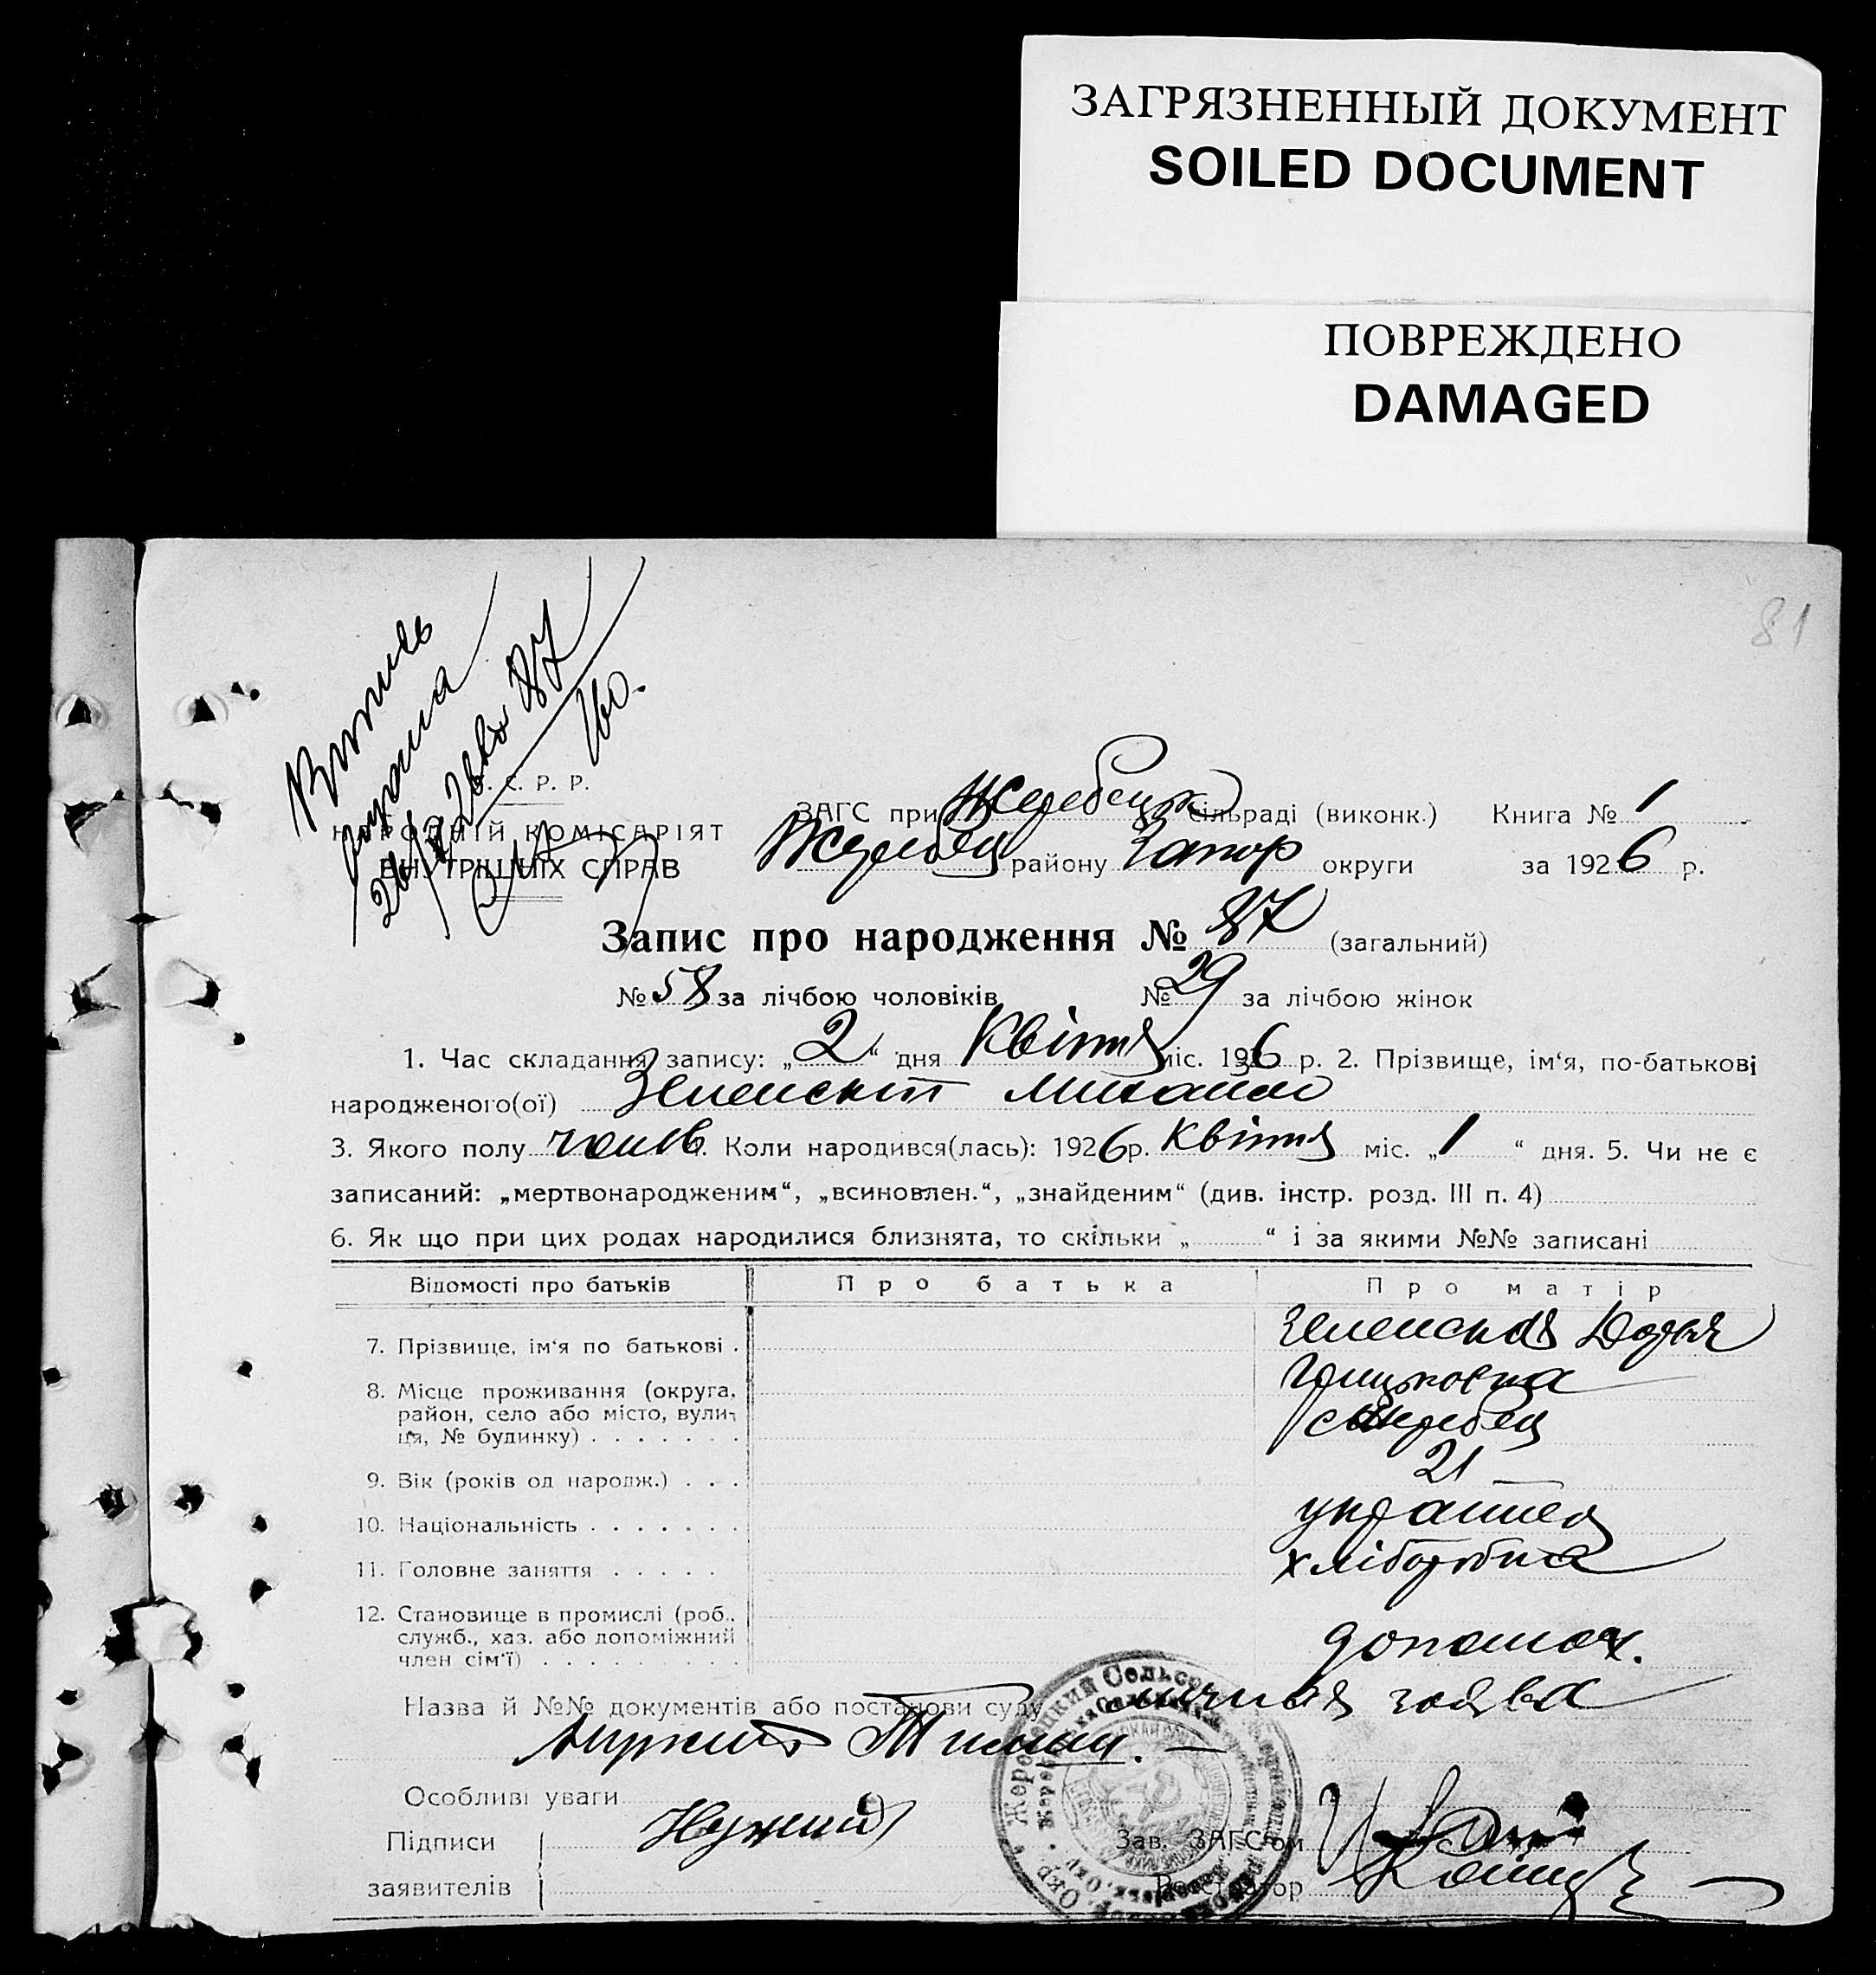 ЗАГРЯЗНЕННЫЙ ДОКУМЕНТ
SOILED DOCUMENT
ПОВРЕЖДЕНО
DAMAGED
81
87
С. Р. Р.
ЗАГС при Жеребецьк сільраді (виконк.) Книга № 1
НАРОДНІЙ КОМІСАРІЯТ
Жеребец району Запор округи за 1926 р.
ВНУТРІШНІХ СПРАВ
Запис про народження № 87 (загальний)
№ 58 за лічбою чоловіків № 29 за лічбою жінок
1. Час складання запису: „2“ дня Квітня міс. 1926 р. 2. Прізвище, ім‘я, по-батькові
народженого(ої) Зеленскій Михайло
3. Якого полу чолов. Коли народився(лась): 1926 р. Квітня міс. „1“ дня. 5. Чи не є
записаний: „мертвонародженим“, „всиновлен.“, „знайденим“ (див. інстр. розд. III п. 4)
6. Як що при цих родах народилися близнята, то скільки „ “ і за якими №№ записані
Відомості про батьків Про батька Про матір
7. Прізвище, ім‘я по батькові . Зеленская Дарья
8. Місце проживання (округа,
район, село або місто, вули-
ця, № будинку) . . . . . . . с Жеребец
9. Вік (років од народж.) . . . 21
10. Національність . . . . . . .
11. Головне заняття . . . . . хліборобка
12. Становище в промислі (роб.,
служб., хаз. або допоміжний
член сім‘ї) . . . . . . . . . допомож.
Назва й №№ документів або постанови суду личная заява
Особливі уваги
Підписи
Зав. ЗАГС‘ом
заявителів
Реєстратор